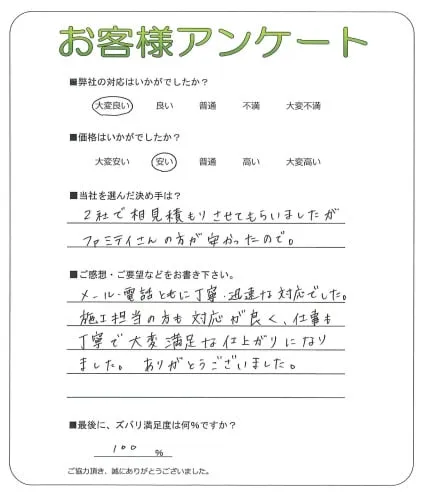 お客様アンケート
■弊社の対応はいかがでしたか？
大変良い 良い 普通 不満 大変不満
■価格はいかがでしたか？
大変安い 安い 普通 高い 大変高い
■当社を選んだ決め手は？
2社で相見積もりさせてもらいましたが
ファミテイさんの方が安かったので。
■ご感想・ご要望などをお書き下さい。
メール・電話ともに丁寧・迅速な対応でした。
施工担当の方も対応が良く、仕事も
丁寧で大変満足な仕上がりになり
ました。ありがとうございました。
■最後に、ズバリ満足度は何％ですか？
100 ％
ご協力頂き、誠にありがとうございました。